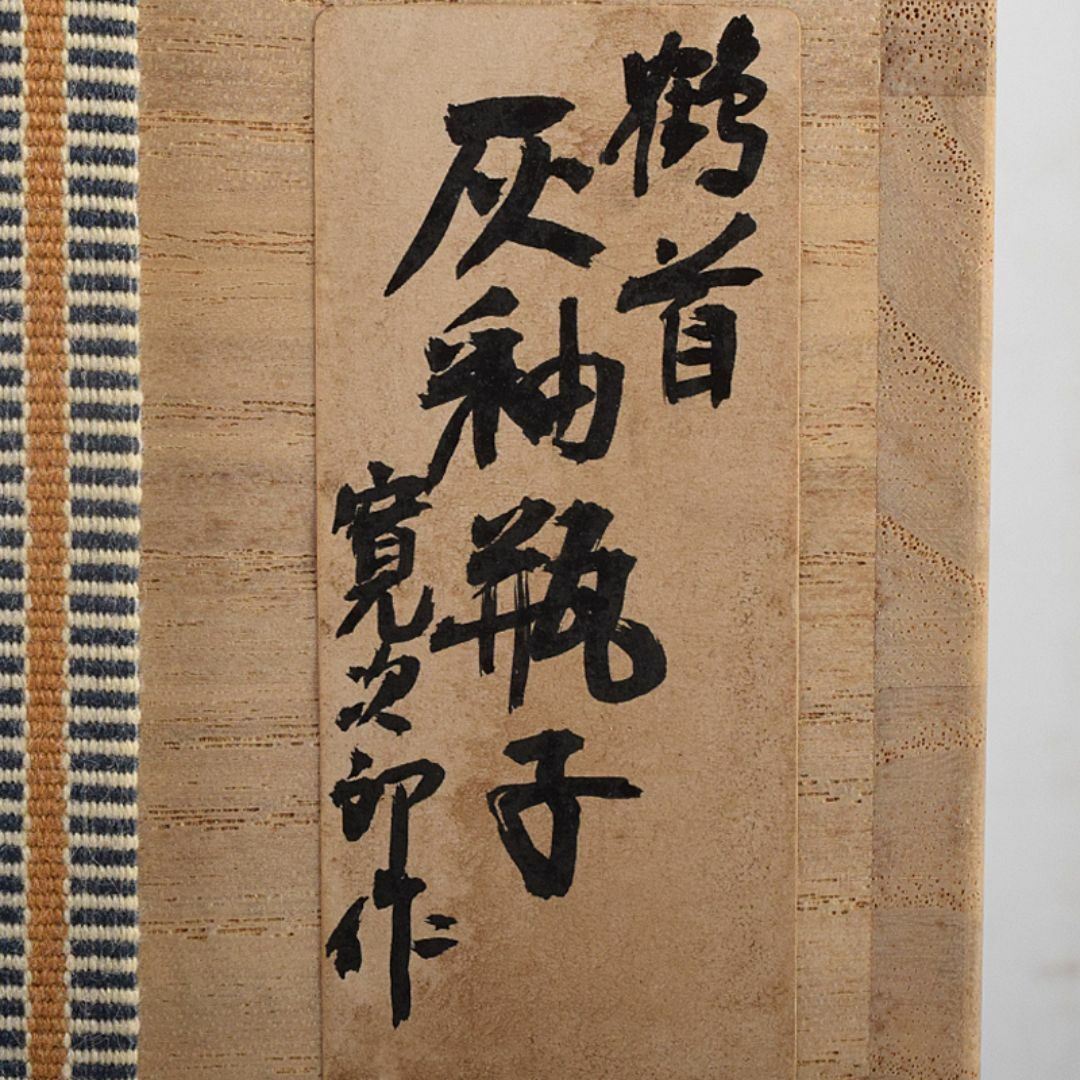 鶴首
灰釉瓶子
寛次郎作